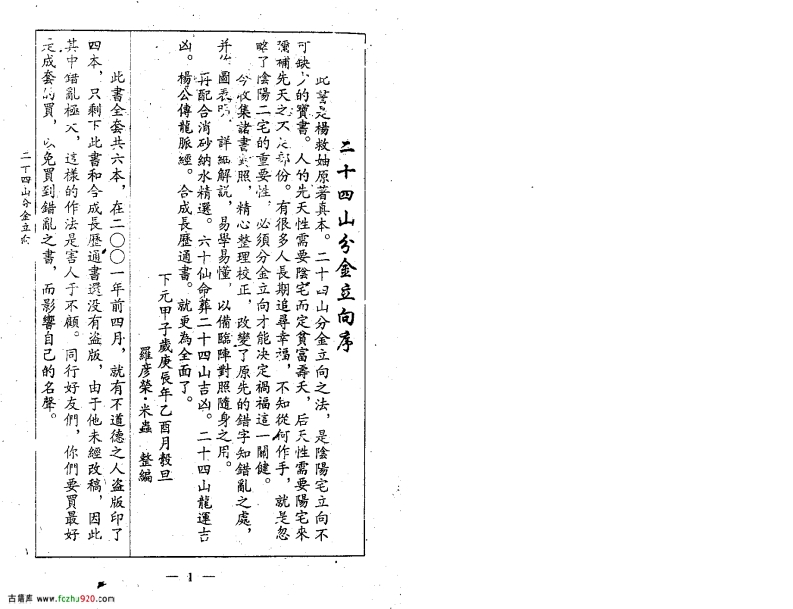 二十四山分金立向序
此書是楊救妯原著真本。二十四山分金立向之法，是陰陽宅立向不
可缺少的寶書。人的先天性需要陰宅而定貧富壽夭，后天性需要陽宅來
彌補先天之不足部份。有很多人長期追尋幸福，不知從何作手，就是忽
略了陰陽二宅的重要性，必須分金立向才能决定禍福這一關健。
今收集諸書對照，精心整理校正，改變了原先的錯字知錯亂之處，
并作圖表明，詳細解説，易學易懂，以備臨陣對照隨身之用。
再配合消砂納水精選。六十仙命葬二十四山吉凶。二十四山龍運吉
凶。楊公傳龍脈經。合成長歷通書。就更為全面了。
下元甲子歲庚辰年乙酉月穀旦
羅彦榮·米蟲 整編
此書全套共六本，在二〇〇一年前四月，就有不道德之人盗版印了
四本，只剩下此書和合成長歷通書還没有盗版，由于他未經改稿，因此
其中錯亂極大，這樣的作法是害人于不顧。同行好友們，你們要買最好
是成套的買，以免買到錯亂之書，而影響自己的名聲。
二十四山分金立向
— 1 —
古籍库 www.fczhu920.com